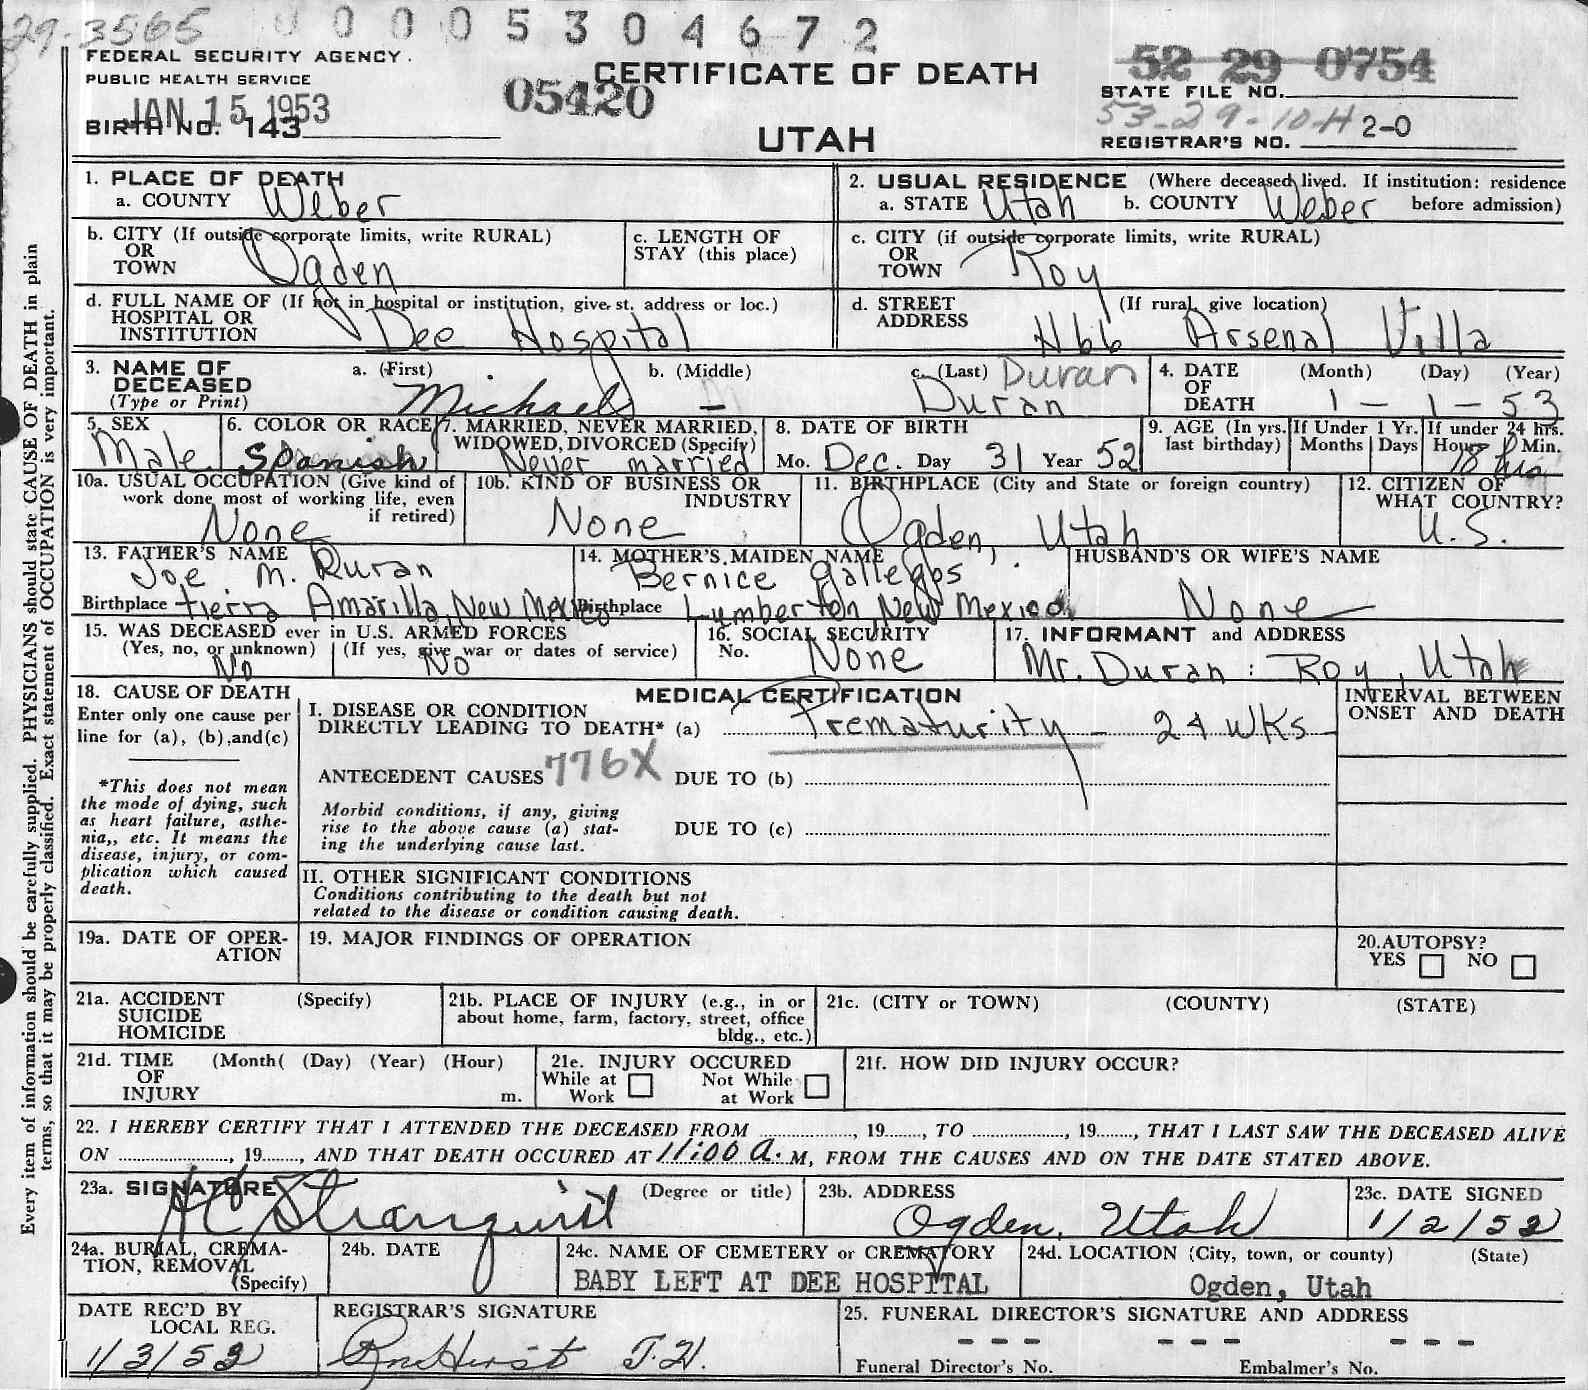 29-3565 0005304672
FEDERAL SECURITY AGENCY.
PUBLIC HEALTH SERVICE
JAN 15 1953
BIRTH NO. 143
05420
CERTIFICATE OF DEATH
UTAH
52 29 0754
STATE FILE NO.
53-29-10-H
REGISTRAR'S NO. 2-0
1. PLACE OF DEATH
a. COUNTY Weber
2. USUAL RESIDENCE (Where deceased lived. If institution: residence before admission)
a. STATE Utah b. COUNTY Weber
b. CITY (If outside corporate limits, write RURAL)
OR
TOWN Ogden
c. LENGTH OF
STAY (this place)
c. CITY (if outside corporate limits, write RURAL)
OR
TOWN Roy
d. FULL NAME OF (If not in hospital or institution, give st, address or loc.)
HOSPITAL OR
INSTITUTION Dee Hospital
d. STREET (If rural, give location)
ADDRESS H66 Arsenal Villa
3. NAME OF
DECEASED
(Type or Print)
a. (First) Michael
b. (Middle) –
c. (Last) Duran
Duran
4. DATE
OF
DEATH
(Month) (Day) (Year)
1 – 1 – 53
5. SEX
Male
6. COLOR OR RACE
Spanish
7. MARRIED, NEVER MARRIED,
WIDOWED, DIVORCED (Specify)
Never married
8. DATE OF BIRTH
Mo. Dec. Day 31 Year 52
9. AGE (In yrs.
last birthday)
If Under 1 Yr.
Months Days
If under 24 hrs.
Hours Min.
18 hrs
10a. USUAL OCCUPATION (Give kind of
work done most of working life, even
if retired)
None
10b. KIND OF BUSINESS OR
INDUSTRY
None
11. BIRTHPLACE (City and State or foreign country)
Ogden, Utah
12. CITIZEN OF
WHAT COUNTRY?
U.S.
13. FATHER'S NAME
Joe M. Duran
Birthplace Tierra Amarilla, New Mexico
14. MOTHER'S MAIDEN NAME
Bernice Gallegos
Birthplace Lumberton, New Mexico
HUSBAND'S OR WIFE'S NAME
None
15. WAS DECEASED ever in U.S. ARMED FORCES
(Yes, no, or unknown) (If yes, give war or dates of service)
No No
16. SOCIAL SECURITY
No. None
17. INFORMANT and ADDRESS
Mr. Duran : Roy, Utah
18. CAUSE OF DEATH
Enter only one cause per
line for (a), (b),and(c)
*This does not mean
the mode of dying, such
as heart failure, asthe-
nia,, etc. It means the
disease, injury, or com-
plication which caused
death.
MEDICAL CERTIFICATION
I. DISEASE OR CONDITION
DIRECTLY LEADING TO DEATH* (a) Prematurity – 24 WKs
ANTECEDENT CAUSES 776X DUE TO (b)
Morbid conditions, if any, giving
rise to the above cause (a) stat-
ing the underlying cause last.
DUE TO (c)
INTERVAL BETWEEN
ONSET AND DEATH
II. OTHER SIGNIFICANT CONDITIONS
Conditions contributing to the death but not
related to the disease or condition causing death.
19a. DATE OF OPER-
ATION
19. MAJOR FINDINGS OF OPERATION
20.AUTOPSY?
YES NO
21a. ACCIDENT (Specify)
SUICIDE
HOMICIDE
21b. PLACE OF INJURY (e.g., in or
about home, farm, factory, street, office
bldg., etc.)
21c. (CITY or TOWN) (COUNTY) (STATE)
21d. TIME (Month( (Day) (Year) (Hour)
OF
INJURY m.
21e. INJURY OCCURED
While at Work Not While at Work
21f. HOW DID INJURY OCCUR?
22. I HEREBY CERTIFY THAT I ATTENDED THE DECEASED FROM , 19 , TO , 19 , THAT I LAST SAW THE DECEASED ALIVE
ON , 19 , AND THAT DEATH OCCURED AT 11:00 A. M, FROM THE CAUSES AND ON THE DATE STATED ABOVE.
23a. SIGNATURE (Degree or title)
HC Stranquist
23b. ADDRESS
Ogden, Utah
23c. DATE SIGNED
1/2/52
24a. BURIAL, CREMA-
TION, REMOVAL
(Specify)
24b. DATE
24c. NAME OF CEMETERY or CREMATORY
BABY LEFT AT DEE HOSPITAL
24d. LOCATION (City, town, or county) (State)
Ogden, Utah
DATE REC'D BY
LOCAL REG.
1/3/52
REGISTRAR'S SIGNATURE
25. FUNERAL DIRECTOR'S SIGNATURE AND ADDRESS
--- --- ---
Funeral Director's No. Embalmer's No.
Every item of information should be carefully supplied. PHYSICIANS should state CAUSE OF DEATH in plain
terms, so that it may be properly classified. Exact statement of OCCUPATION is very important.